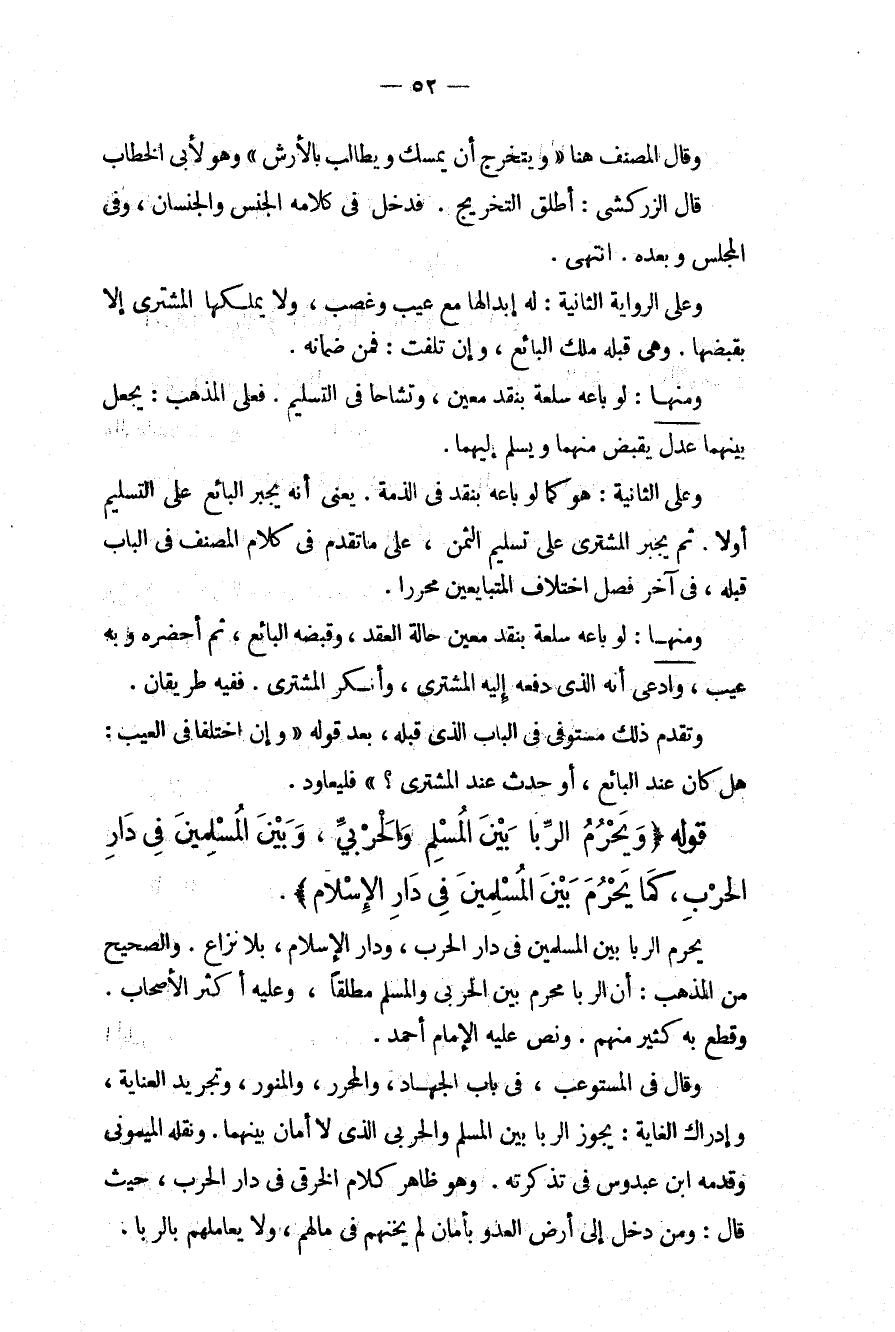 — ٥٢ —
وقال المصنف هنا « ويتخرج أن يمسك ويطالب بالأرش » وهو لأبى الخطاب
قال الزركشى : أطلق التخريج . فدخل فى كلامه الجنس والجنسان ، وفى
المجلس وبعده . انتهى .
وعلى الرواية الثانية : له إبدالها مع عيب وغصب ، ولا يملكها المشترى إلا
بقبضها . وهى قبله ملك البائع ، وإن تلفت : فمن ضمانه .
ومنها : لو باعه سلعة بنقد معين ، وتشاحا فى التسليم . فعلى المذهب : يجعل
بينهما عدل يقبض منهما ويسلم إليهما .
وعلى الثانية : هو كما لو باعه بنقد فى الذمة . يعنى أنه يجبر البائع على التسليم
أولا . ثم يجبر المشترى على تسليم الثمن ، على ماتقدم فى كلام المصنف فى الباب
قبله ، فى آخر فصل اختلاف المتبايعين محررا .
ومنها : لو باعه سلعة بنقد معين حالة العقد ، وقبضه البائع ، ثم أحضره وبه
عيب ، وادعى أنه الذى دفعه إليه المشترى ، وأنكر المشترى . ففيه طريقان .
وتقدم ذلك مستوفى فى الباب الذى قبله ، بعد قوله « وإن اختلفا فى العيب :
هل كان عند البائع ، أو حدث عند المشترى ؟ » فليعاود .
قوله ﴿ وَيَحْرُمُ الرِّبا بَيْنَ الْمُسْلِمِ وَالْحَرْبِيِّ ، وَبَيْنَ الْمُسْلِمِينَ فِى دَارِ
الحَرْبِ ، كَمَا يَحْرُمُ بَيْنَ الْمُسْلِمِينَ فِى دَارِ الإِسْلَامِ ﴾ .
يحرم الربا بين المسلمين فى دار الحرب ، ودار الإسلام ، بلا نزاع . والصحيح
من المذهب : أن الربا محرم بين الحربى والمسلم مطلقاً ، وعليه أكثر الأصحاب .
وقطع به كثير منهم . ونص عليه الإمام أحمد .
وقال فى المستوعب ، فى باب الجهاد ، والمحرر ، والمنور ، وتجريد العناية ،
وإدراك الغاية : يجوز الربا بين المسلم والحربى الذى لا أمان بينهما . ونقله الميمونى
وقدمه ابن عبدوس فى تذكرته . وهو ظاهر كلام الخرقى فى دار الحرب ، حيث
قال : ومن دخل إلى أرض العدو بأمان لم يخنهم فى مالهم ، ولا يعاملهم بالربا .